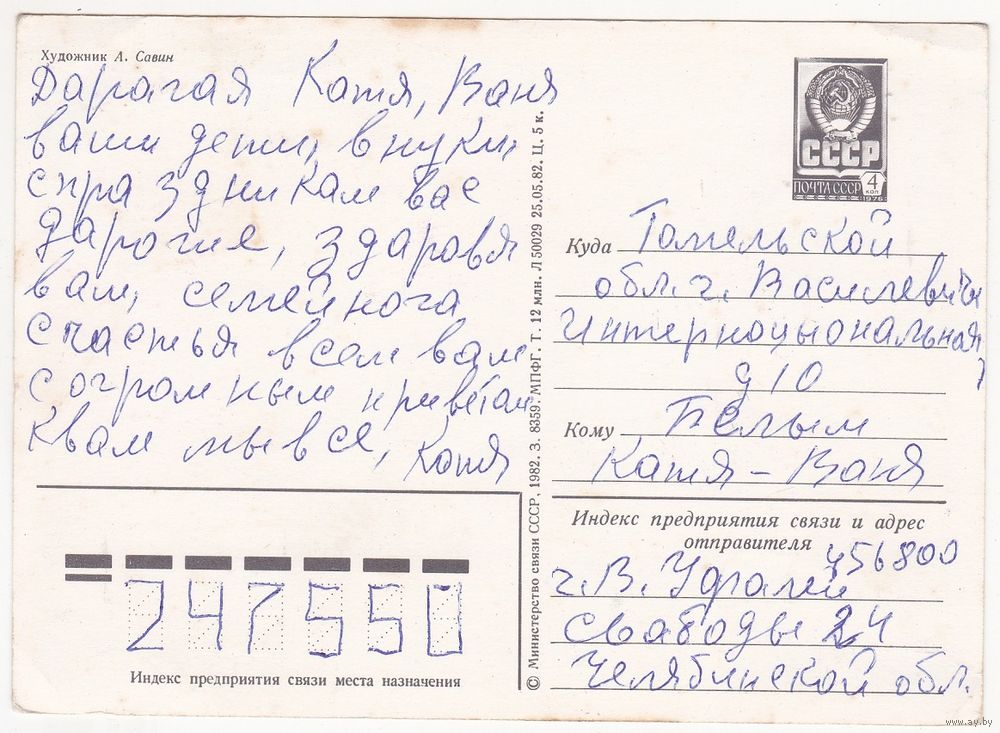 Художник А. Савин
Дарагая Катя, Ваня
ваши дети, внуки,
с праздникам вас
дарогие, здаровья
вам, семейнога
счастья всем вам
с огромным приветам
к вам мы все, Катя
СССР
ПОЧТА СССР 4 коп
1976
Куда Гомельской
обл. г. Василевичи
Интерноцыональная
д 10
Кому Белым
Катя - Ваня
Индекс предприятия связи и адрес
отправителя 456800
г. В. Уфалей
Свабоды 24
Челябинской обл.
247550
Индекс предприятия связи места назначения
© Министерство связи СССР, 1982. З. 8359. МПФГ. Г. 12 млн. Л 50029 25.05.82. Ц. 5 к.
www.ay.by